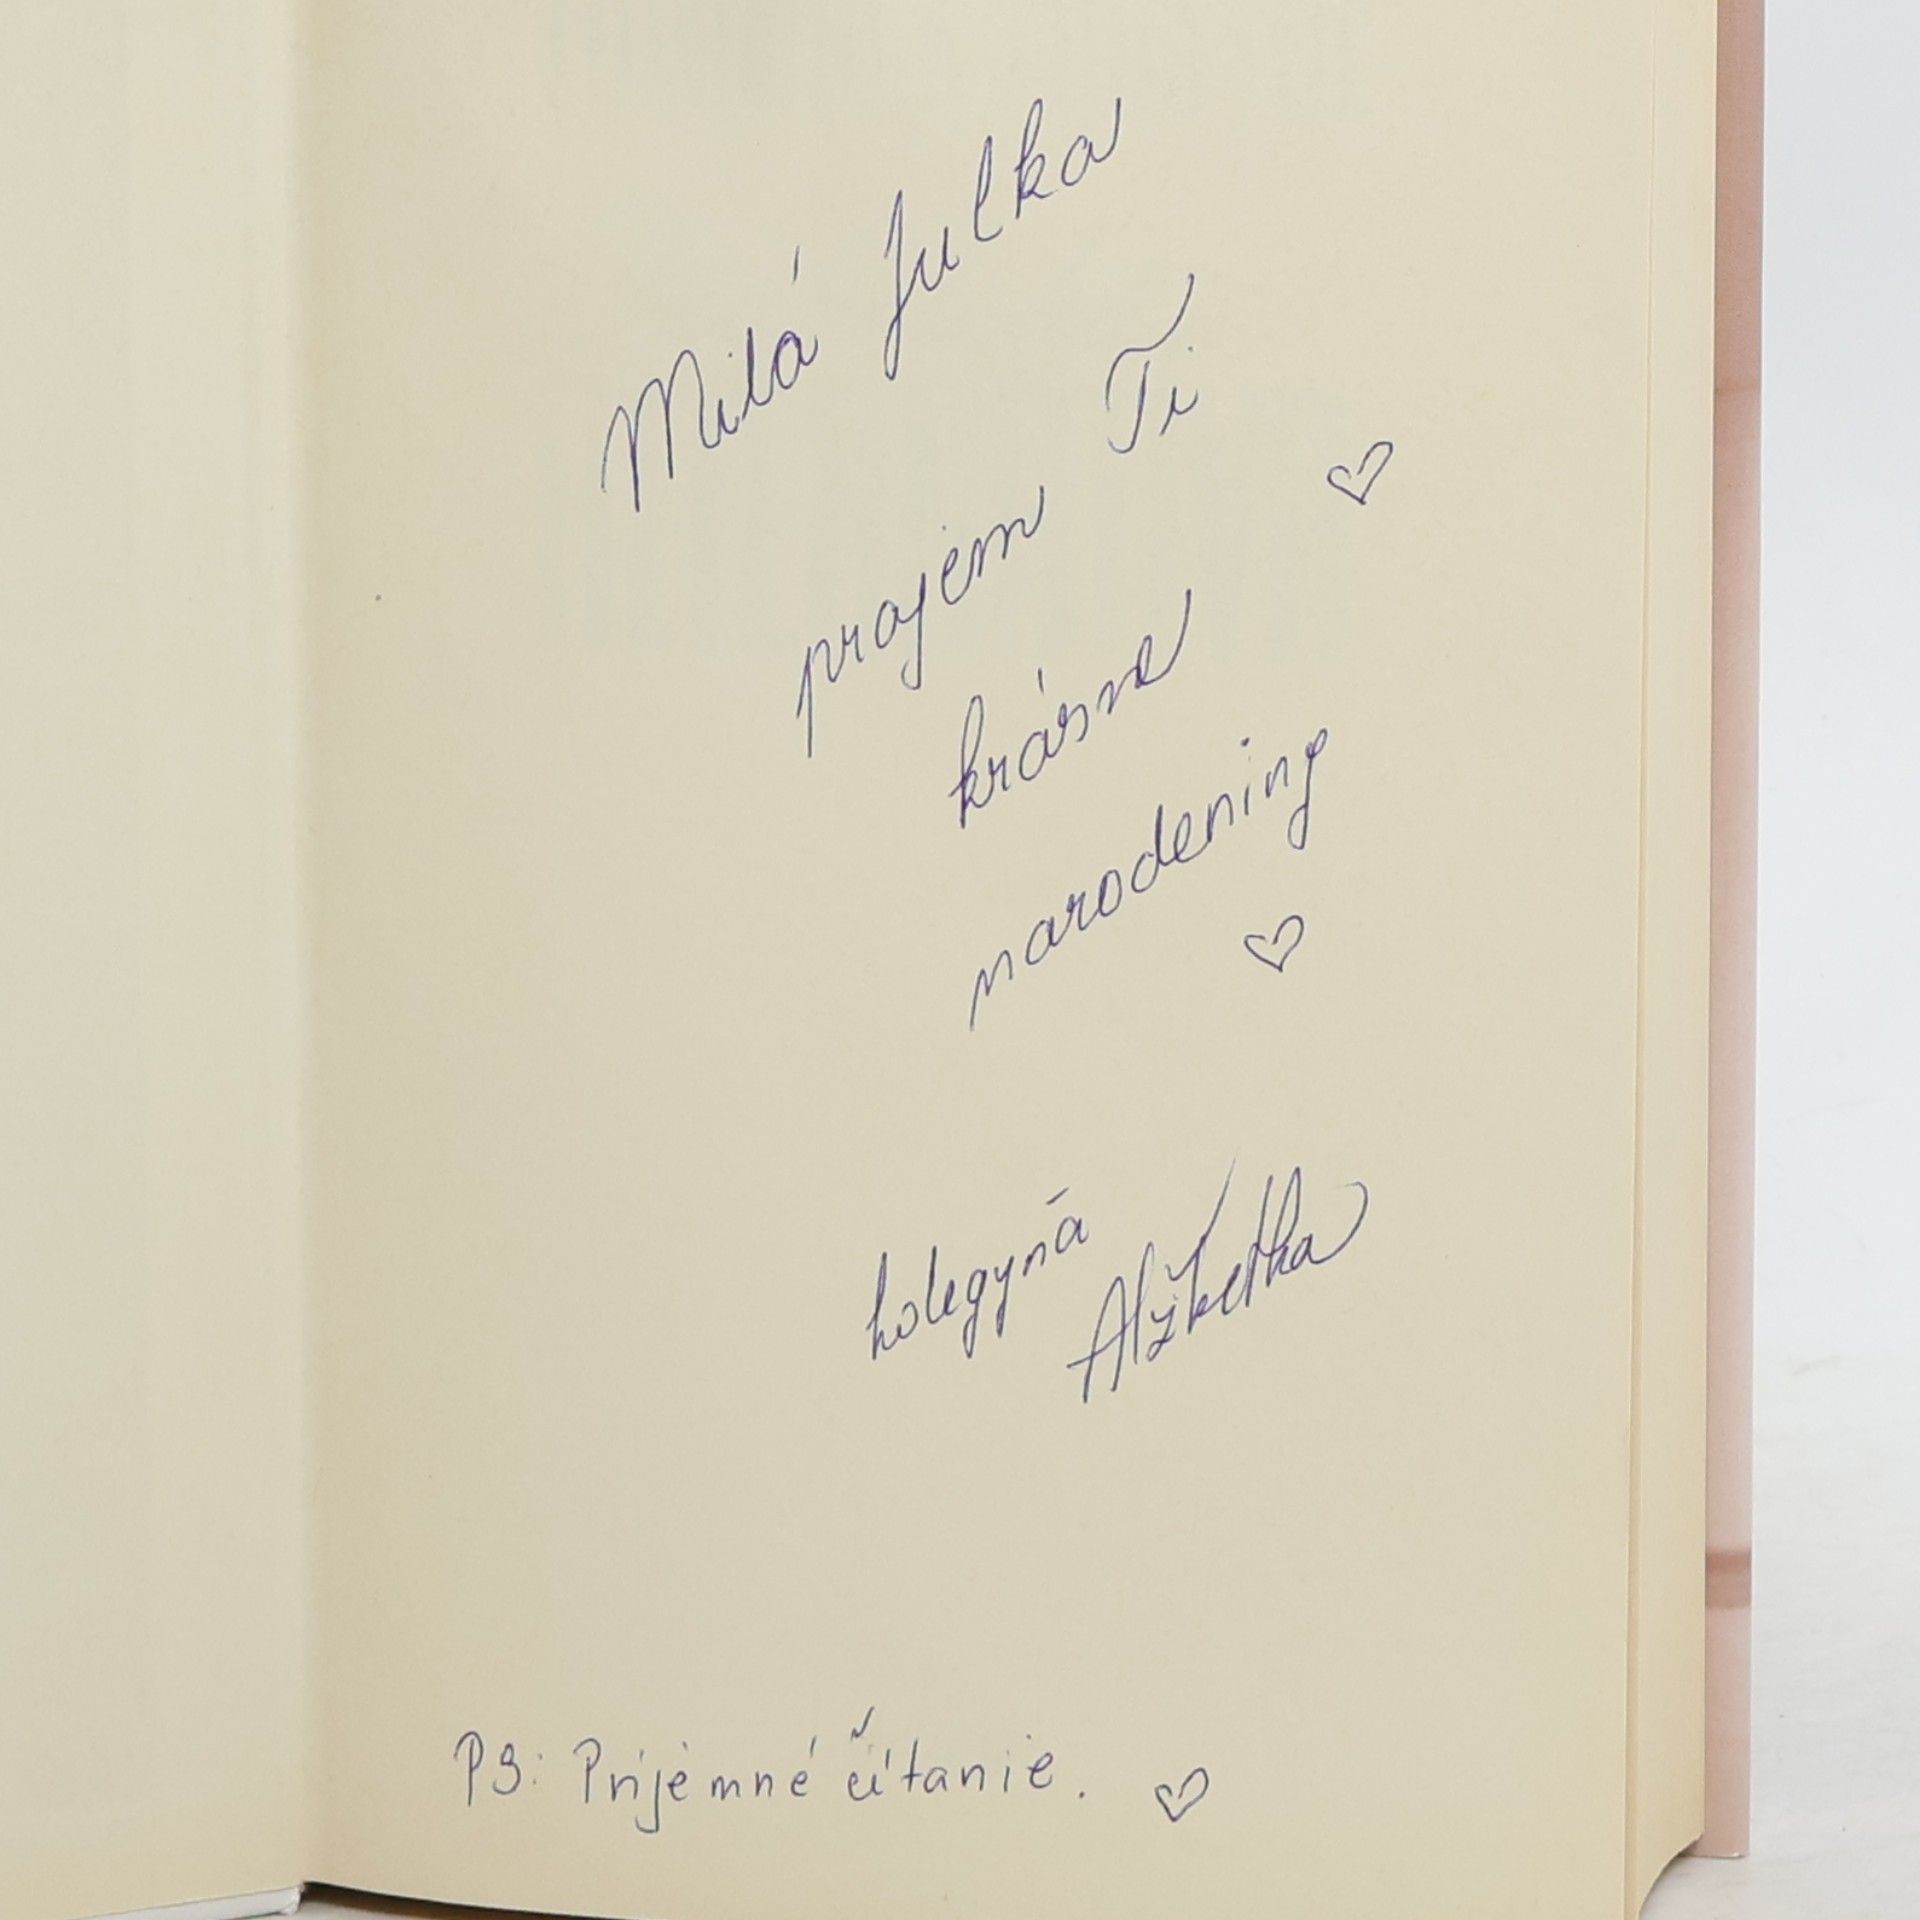 Milá Julka
prajem Ti
krásne
narodeniny
kolegyňa
Alžbetka
PS: Príjemné čítanie.